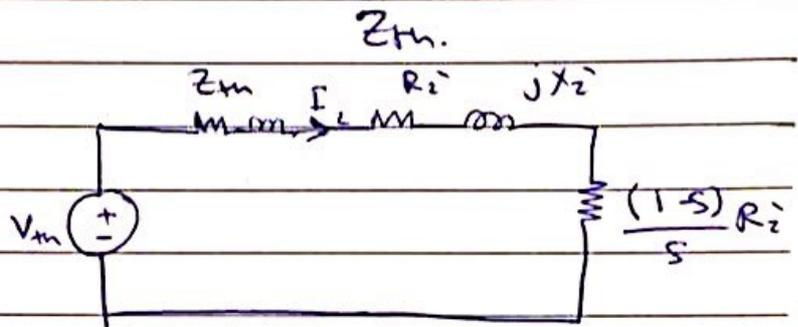 Zth.
Zth I R2' jX2'
Vth + - (1-s)/s R2'